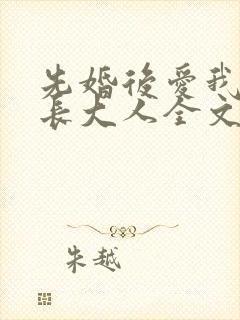 先婚後愛我
長大人全文
朱越